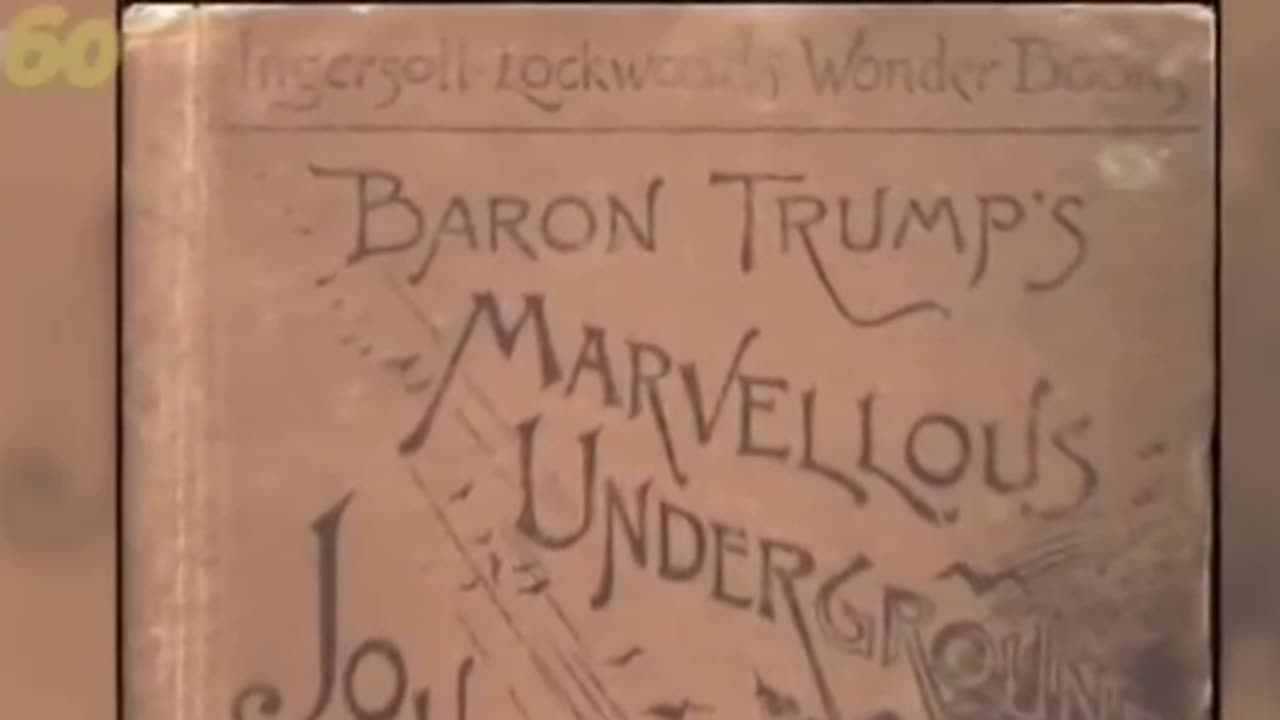 60
Ingersoll Lockwood's Wonder Books
BARON TRUMP'S
MARVELLOUS
UNDERGROUN
JOU